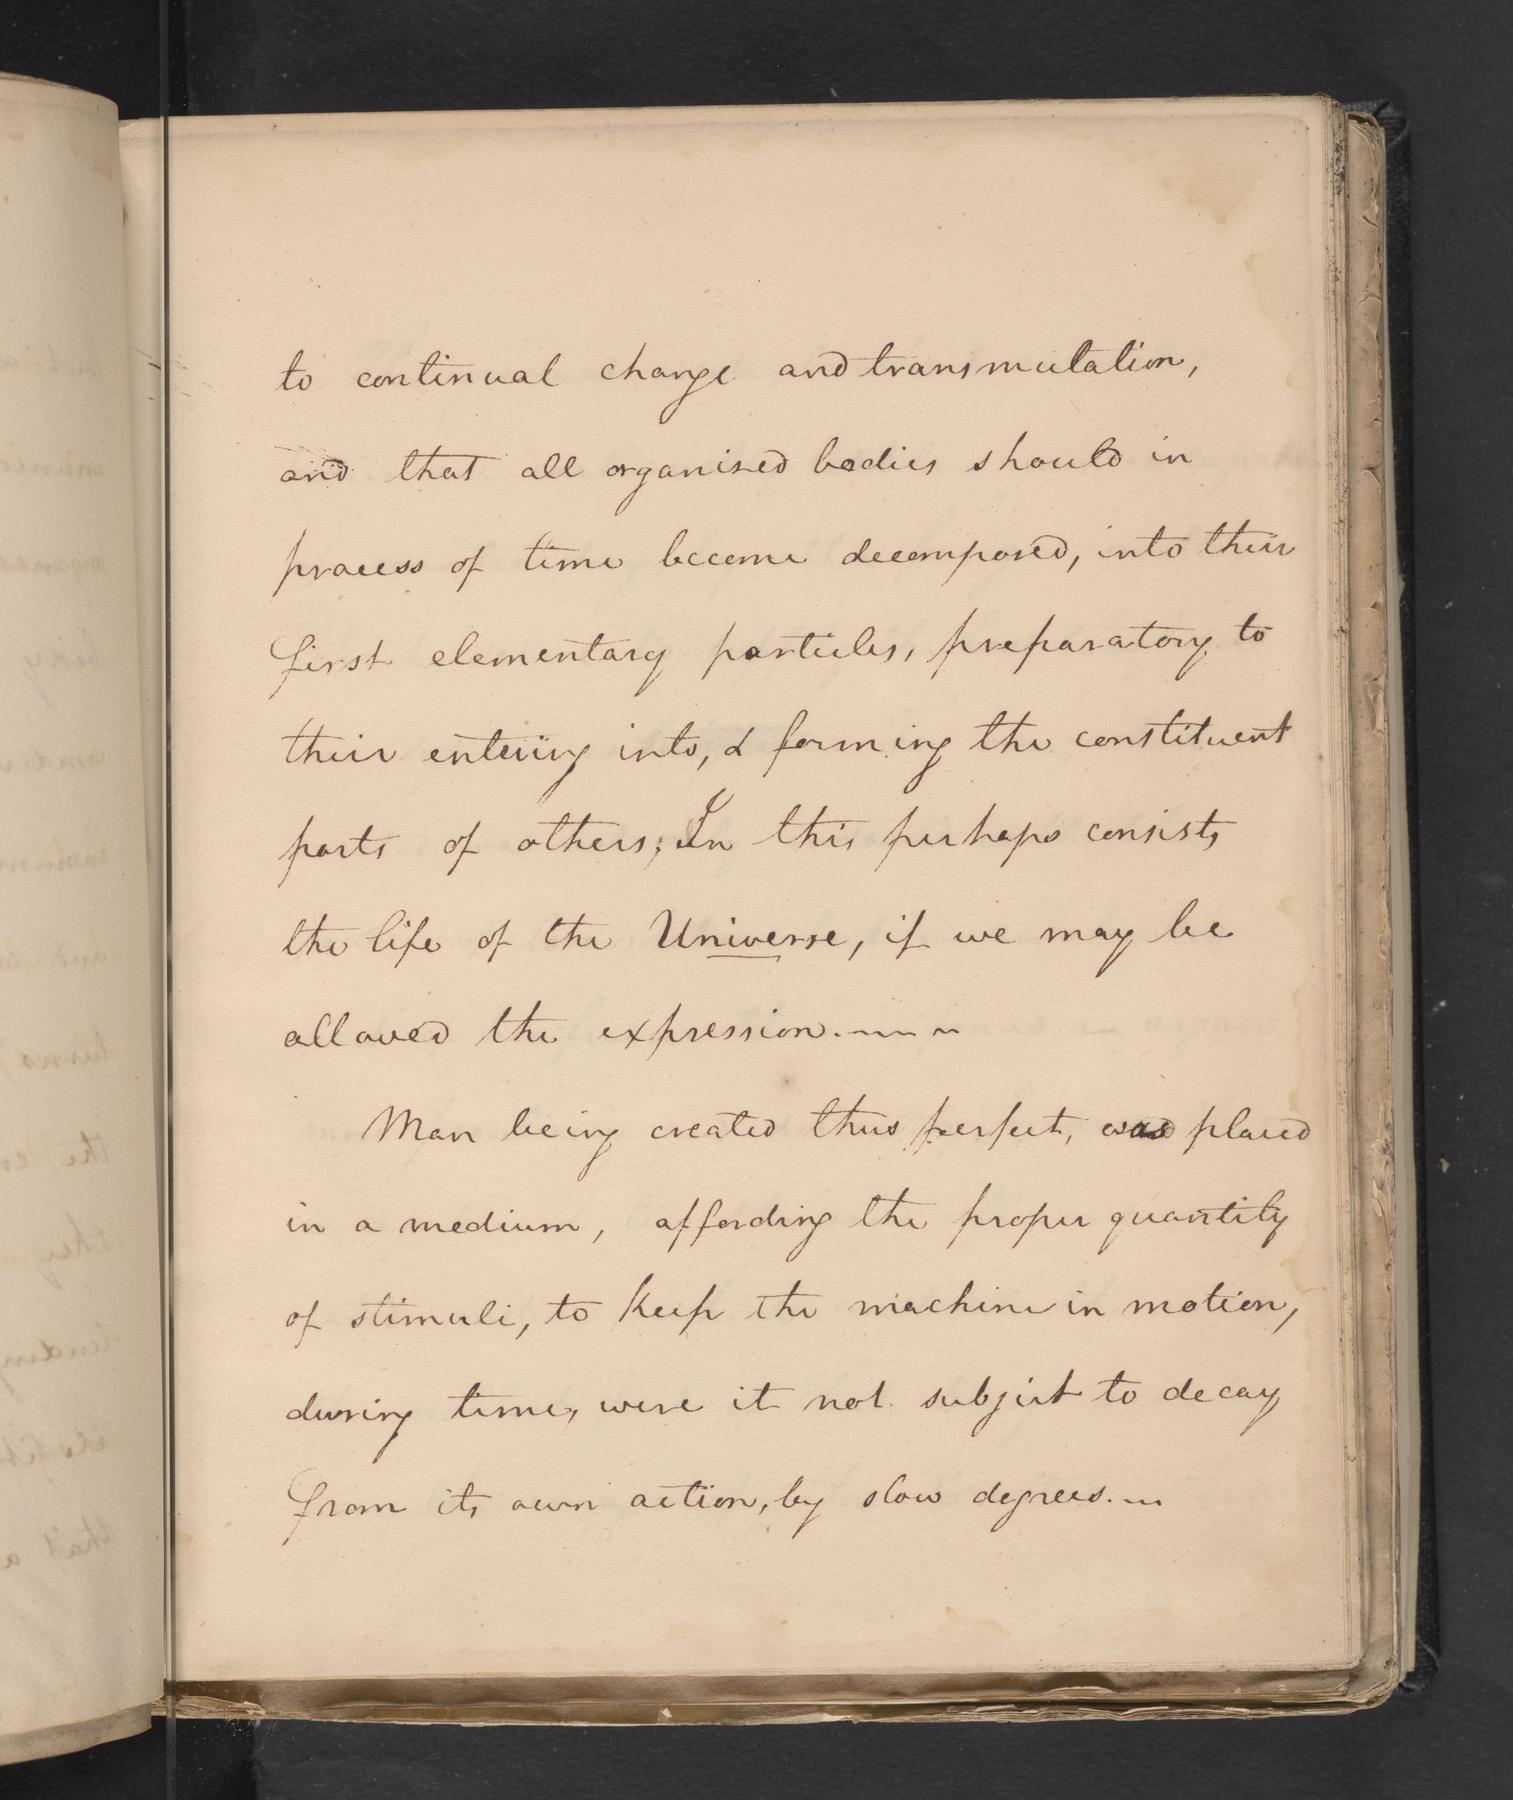 to continual change and transmutation,
and that all organised bodies should in
process of time become decomposed, into their
first elementary particles, preparatory to
their entering into, & forming the constituent
parts of others; In this perhaps consists
the life of the Universe, if we may be
allowed the expression.
Man being created thus perfect, was placed
in a medium, affording the proper quantity
of stimuli, to keep the machine in motion,
during time, were it not subject to decay
from its own action, by slow degrees.